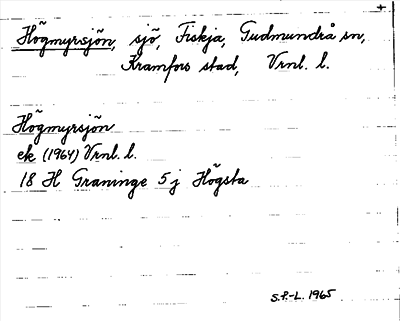 Högmyrsjön, sjö, Fiskja, Gudmundrå sn,
Kramfors stad, Vrnl. l.
Högmyrsjön
ek (1964) Vrnl. l.
18 H Graninge 5 j Högsta
S.P.-L. 1965